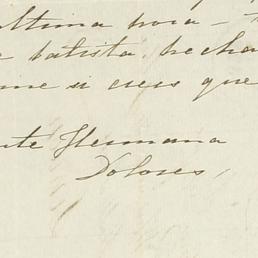 ultima hora — t
e batista hecha
me si crees que
nte Hermana
Dolores,